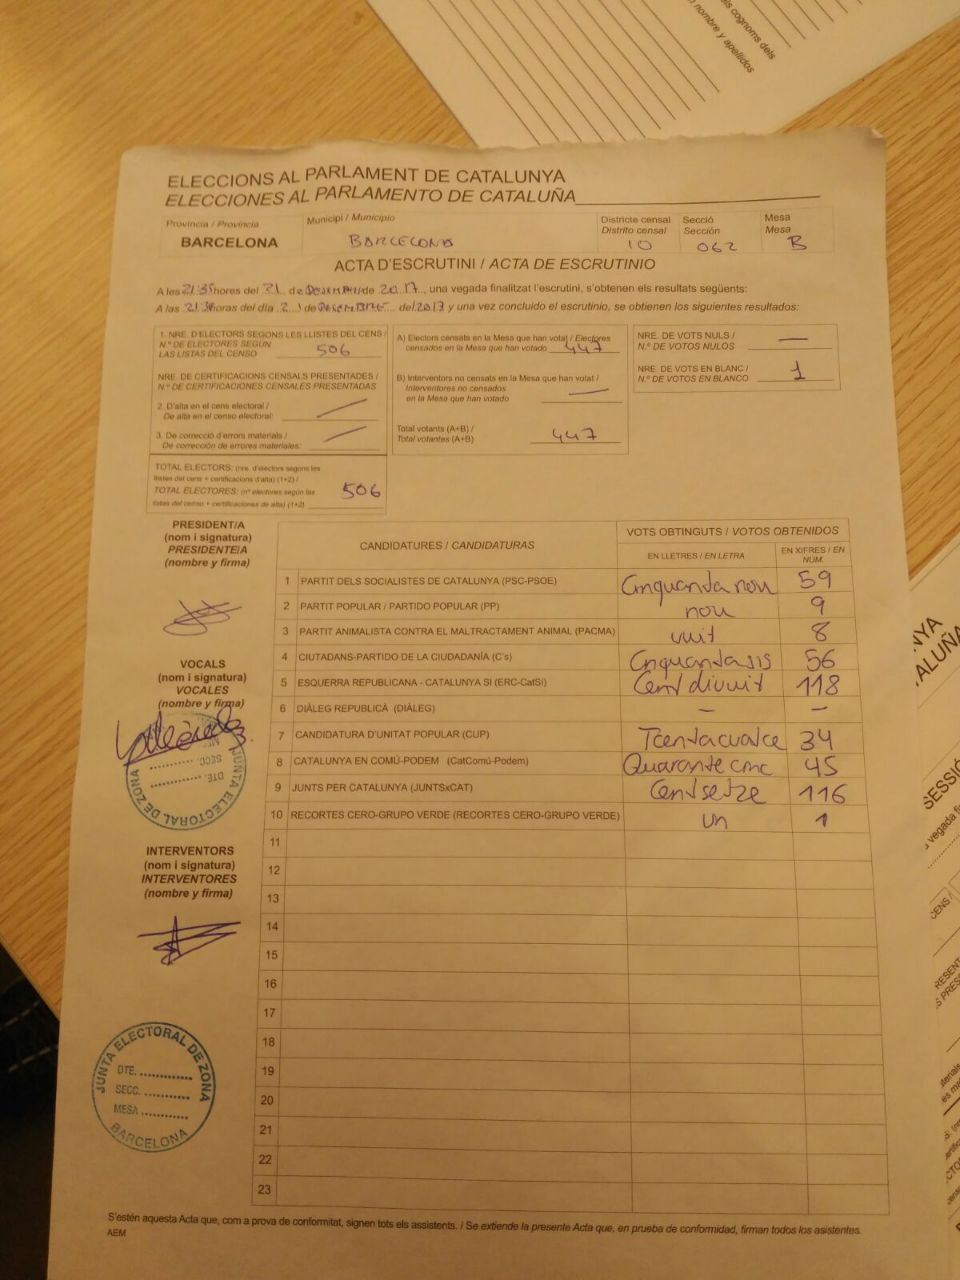 ls cognoms dels
n nombre y apellidos
ELECCIONS AL PARLAMENT DE CATALUNYA
ELECCIONES AL PARLAMENTO DE CATALUÑA
Provincia / Provincia Municipi / Municipio Districte censal Secció Mesa
Distrito censal Sección Mesa
BARCELONA BARCELONA 10 062 B
ACTA D'ESCRUTINI / ACTA DE ESCRUTINIO
A les 21:35 hores del 21 de DESEMBRE de 2017, una vegada finalitzat l'escrutini, s'obtenen els resultats següents:
A las horas del día 21 de DESEMBRE de 2017 y una vez concluido el escrutinio, se obtienen los siguientes resultados:
1. NRE. D'ELECTORS SEGONS LES LLISTES DEL CENS /
N.º DE ELECTORES SEGÚN
LAS LISTAS DEL CENSO 506
NRE. DE CERTIFICACIONS CENSALS PRESENTADES /
N.º DE CERTIFICACIONES CENSALES PRESENTADAS
2. D'alta en el cens electoral /
De alta en el censo electoral:
3. De correcció d'errors materials /
De corrección de errores materiales:
TOTAL ELECTORS: (nre. d'electors segons les
llistes del cens + certificacions d'alta) (1+2) /
TOTAL ELECTORES: (nº electores según las
listas del censo + certificaciones de alta) (1+2) 506
A) Electors censats en la Mesa que han votat / Electores
censados en la Mesa que han votado 447
B) Interventors no censats en la Mesa que han votat /
Interventores no censados
en la Mesa que han votado —
Total votants (A+B) /
Total votantes (A+B) 447
NRE. DE VOTS NULS /
N.º DE VOTOS NULOS —
NRE. DE VOTS EN BLANC /
N.º DE VOTOS EN BLANCO 1
PRESIDENT/A
(nom i signatura)
PRESIDENTE/A
(nombre y firma)
VOCALS
(nom i signatura)
VOCALES
(nombre y firma)
JUNTA ELECTORAL DE ZONA
DTE.
SECC.
INTERVENTORS
(nom i signatura)
INTERVENTORES
(nombre y firma)
JUNTA ELECTORAL DE ZONA
DTE. ............
SECC. ............
MESA ............
BARCELONA
CANDIDATURES / CANDIDATURAS VOTS OBTINGUTS / VOTOS OBTENIDOS
EN LLETRES / EN LETRA EN XIFRES / EN NÚM.
1 PARTIT DELS SOCIALISTES DE CATALUNYA (PSC-PSOE) Cinquanta nou 59
2 PARTIT POPULAR / PARTIDO POPULAR (PP) nou 9
3 PARTIT ANIMALISTA CONTRA EL MALTRACTAMENT ANIMAL (PACMA) vuit 8
4 CIUTADANS-PARTIDO DE LA CIUDADANÍA (C's) Cinquanta sis 56
5 ESQUERRA REPUBLICANA - CATALUNYA SI (ERC-CatSí) Cent divuit 118
6 DIÀLEG REPUBLICÀ (DIÀLEG) – –
7 CANDIDATURA D'UNITAT POPULAR (CUP) 34
8 CATALUNYA EN COMÚ-PODEM (CatComú-Podem) 45
9 JUNTS PER CATALUNYA (JUNTSxCAT) Cent setze 116
10 RECORTES CERO-GRUPO VERDE (RECORTES CERO-GRUPO VERDE) un 1
11
12
13
14
15
16
17
18
19
20
21
22
23
S'estén aquesta Acta que, com a prova de conformitat, signen tots els assistents. / Se extiende la presente Acta que, en prueba de conformidad, firman todos los asistentes.
AEM